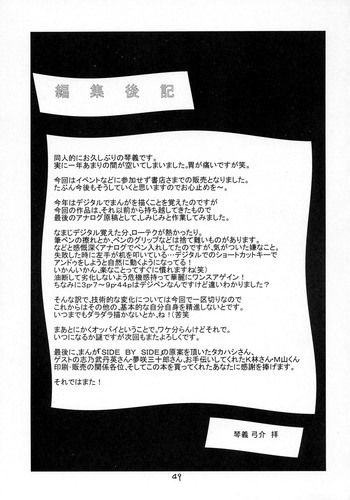 編集後記
同人的にお久しぶりの琴義です。
実に一年あまりの間が空いてしまいました。胃が痛いですが笑。
今回はイベントなどに参加せず書店さまでの販売となりました。
たぶん今後もそうしていくと思いますのでお心止めを～。
今年はデジタルでまんがを描くことを覚えたのですが
今回の作品は、それ以前から持ち越してきたもので
最後のアナログ原稿として、しみじみと作業してみました。
なまじデジタル覚えた分、ローテクが熱かったり。
筆ペンの擦れとか、ペンのグリップなどは捨て難いものがあります。
などと感慨深くアナログでペン入れて行ったのですが、気がついた嫌なこと。
失敗した時に左手が机を叩いている…デジタルでのショートカットキーで
アンドゥをしようと自然に動くようになってる！
いかんいかん、楽なことってすぐに慣れますね（笑）
油断して劣化しないよう危機感持って華麗にワンスアゲイン！
ちなみに3p7～9p44pはデジペンなんですけど違いわかりました？
そんな訳で、技術的な変化については今回で一区切りなので
これからはその他の、基本的な自分自身を精進しないとです。
いつまでもダラダラ描かないとか、ね…（苦笑）
まあとにかくオッパイということで、ワケ分らんけどそれで。
いつになるか謎ですが次回もまたよろしくです。
最後に、まんが「SIDE BY SIDE」の原案を頂いたタカハシさん、
ゲストの志乃武丹英さん・夢咲三十郎さん、お手伝いしてくれたK林さん・M山くん
印刷・販売の関係各位、そしてこの本を買ってくれたあなたに感謝を捧げます。
それではまた！
琴義 弓介 拝
49